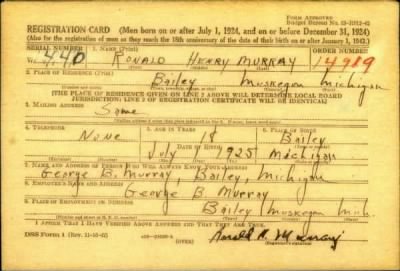 FORM APPROVED
REGISTRATION CARD (Men born on or after July 1, 1924, and on or before December 31, 1924)
(Also for the registration of men as they reach the 18th anniversary of the date of their birth on or after January 1, 1943.)
SERIAL NUMBER 1. NAME (Print) ORDER NUMBER
440 RONALD HENRY MURRAY 14989
2. PLACE OF RESIDENCE (Print)
Bailey Muskegon Michigan
[THE PLACE OF RESIDENCE GIVEN ON LINE 2 ABOVE WILL DETERMINE LOCAL BOARD
JURISDICTION; LINE 2 OF REGISTRATION CERTIFICATE WILL BE IDENTICAL]
3. MAILING ADDRESS
Same
4. TELEPHONE 5. AGE IN YEARS 6. PLACE OF BIRTH
None 18 Bailey
DATE OF BIRTH
July 1925 Michigan
7. NAME AND ADDRESS OF PERSON WHO WILL ALWAYS KNOW YOUR ADDRESS
George B. Murray, Bailey, Michigan
8. EMPLOYER'S NAME AND ADDRESS
George B Murray
9. PLACE OF EMPLOYMENT OR BUSINESS
Bailey Muskegon Mich.
I AFFIRM THAT I HAVE VERIFIED ABOVE ANSWERS AND THAT THEY ARE TRUE.
DSS Form 1 (OVER)